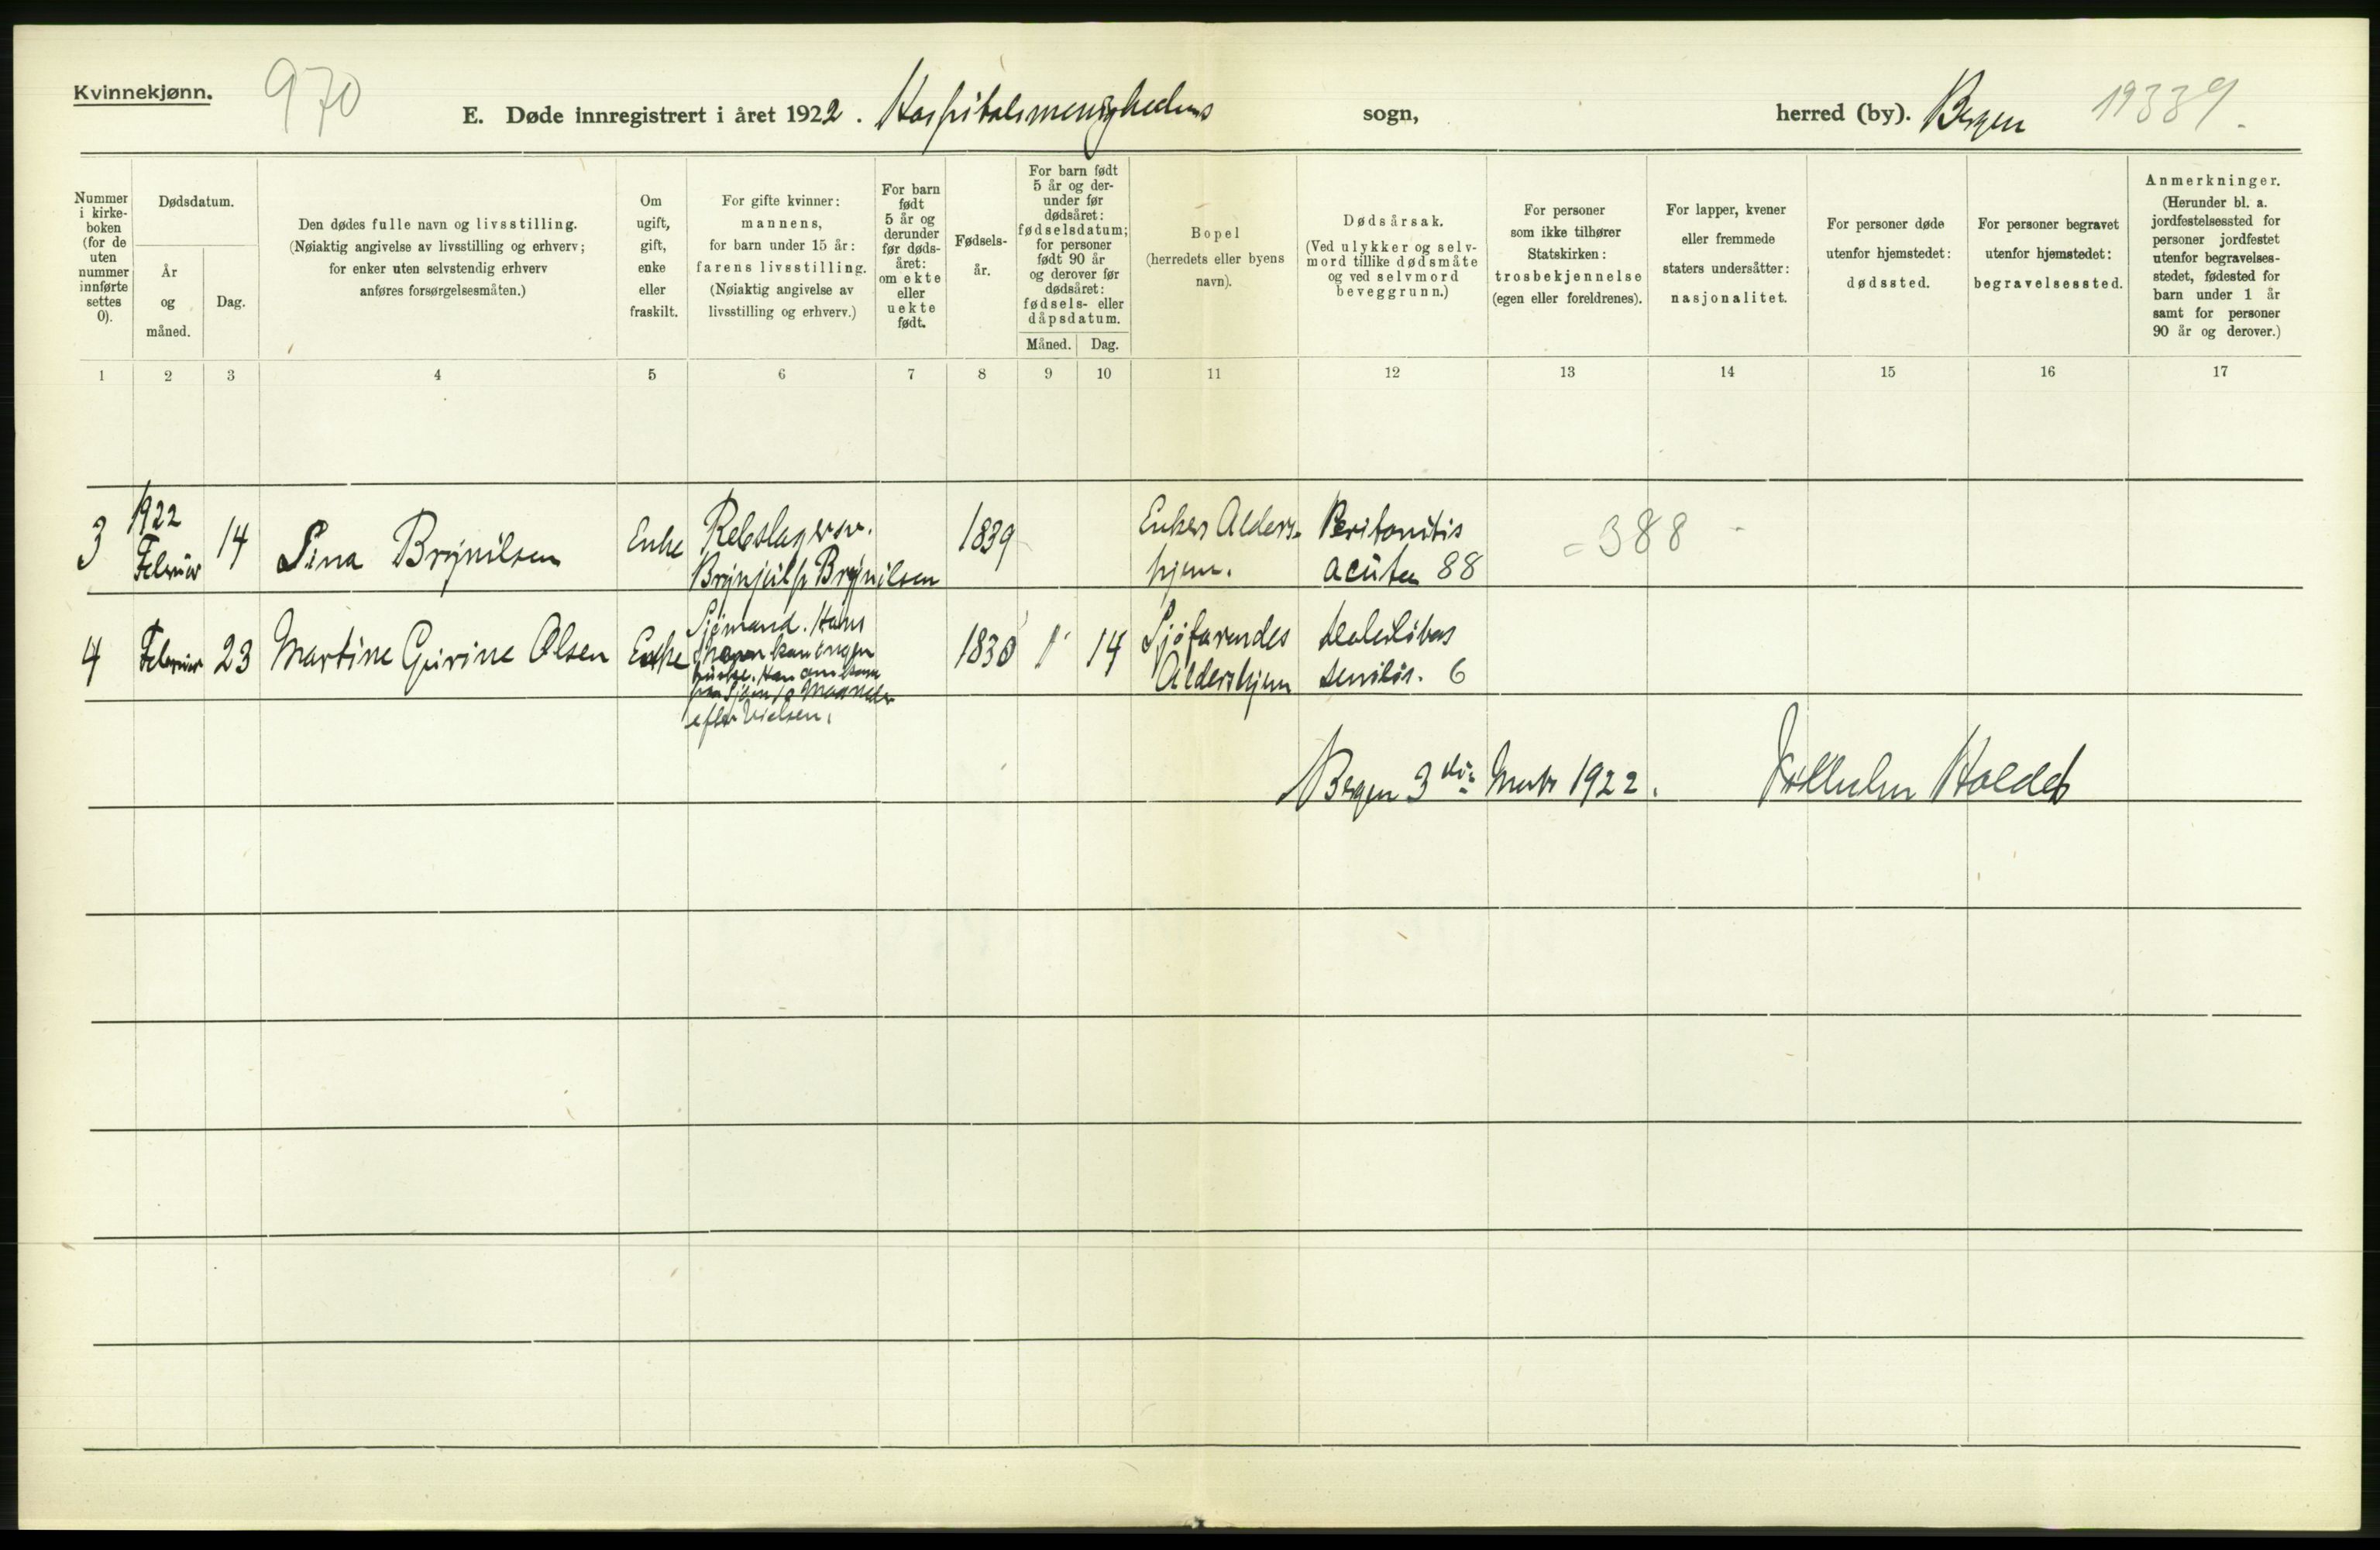 Kvinnekjønn.
970
E. Døde innregistrert i året 1922. Hospitalsmenighedens sogn, herred (by). Bergen 19339.
Nummer i kirke-boken (for de uten nummer innførte settes 0).
Dødsdatum.
År og måned.
Dag.
Den dødes fulle navn og livsstilling.
(Nøiaktig angivelse av livsstilling og erhverv;
for enker uten selvstendig erhverv
anføres forsørgelsesmåten.)
Om
ugift,
gift,
enke
eller
fraskilt.
For gifte kvinner:
mannens,
for barn under 15 år:
farens livsstilling.
(Nøiaktig angivelse av
livsstilling og erhverv.)
For barn
født
5 år og
derunder
før døds-
året:
om ekte
eller
uekte
født.
Fødsels-
år.
For barn født
5 år og der-
under før
dødsåret:
fødselsdatum;
for personer
født 90 år
og derover før
dødsåret:
fødsels- eller
dåpsdatum.
Måned. Dag.
Bopel
(herredets eller byens
navn).
Dødsårsak.
(Ved ulykker og selv-
mord tillike dødsmåte
og ved selvmord
beveggrunn.)
For personer
som ikke tilhører
Statskirken:
trosbekjennelse
(egen eller foreldrenes).
For lapper, kvener
eller fremmede
staters undersåtter:
nasjonalitet.
For personer døde
utenfor hjemstedet:
dødssted.
For personer begravet
utenfor hjemstedet:
begravelsessted.
Anmerkninger.
(Herunder bl. a.
jordfestelsessted for
personer jordfestet
utenfor begravelses-
stedet, fødested for
barn under 1 år
samt for personer
90 år og derover.)
1 2 3 4 5 6 7 8 9 10 11 12 13 14 15 16 17
3
1922
Februar
14
Sina Brynilsen
Enke
Rebslagersv.
Brynjulf Brynilsen
1839
Enkers Alders-
hjem.
Peritonitis
acuta 88
= 388 -
4
Februar
23
Martine Gurine Olsen
Enke
Sjömand. Hans
Navn kan ingen
huske. Han omkom
paa Sjöen 10 Maaneder
efter Vielsen.
1830
1
14
Sjöfarendes
Aldershjem
senilis. 6
Bergen 3die Marts 1922.
Vilhelm Holdt